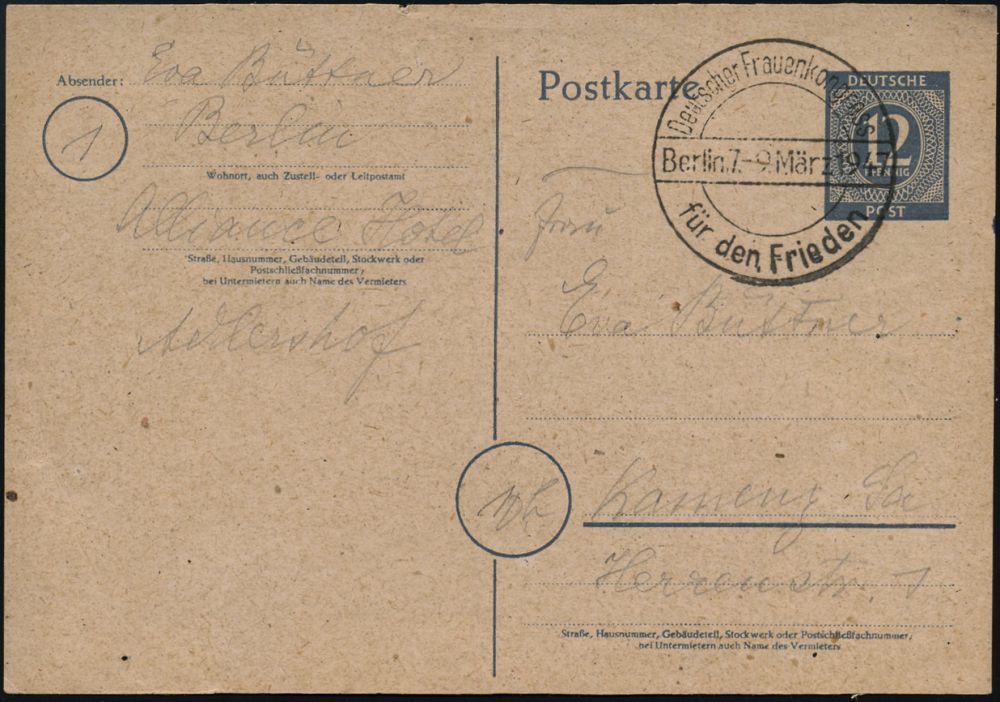 Absender: Eva Büttner
1
Berlin
Wohnort, auch Zustell- oder Leitpostamt
Alliance Hotel
Straße, Hausnummer, Gebäudeteil, Stockwerk oder
Postschließfachnummer;
bei Untermietern auch Name des Vermieters
Adlershof
Postkarte
DEUTSCHE
12
PFENNIG
POST
Deutscher Frauenkongress
Berlin, 7.-9. März 1947
für den Frieden
Frau
Eva Büttner
10b
Kamenz Sa
Herrenstr. 1
Straße, Hausnummer, Gebäudeteil, Stockwerk oder Postschließfachnummer;
bei Untermietern auch Name des Vermieters